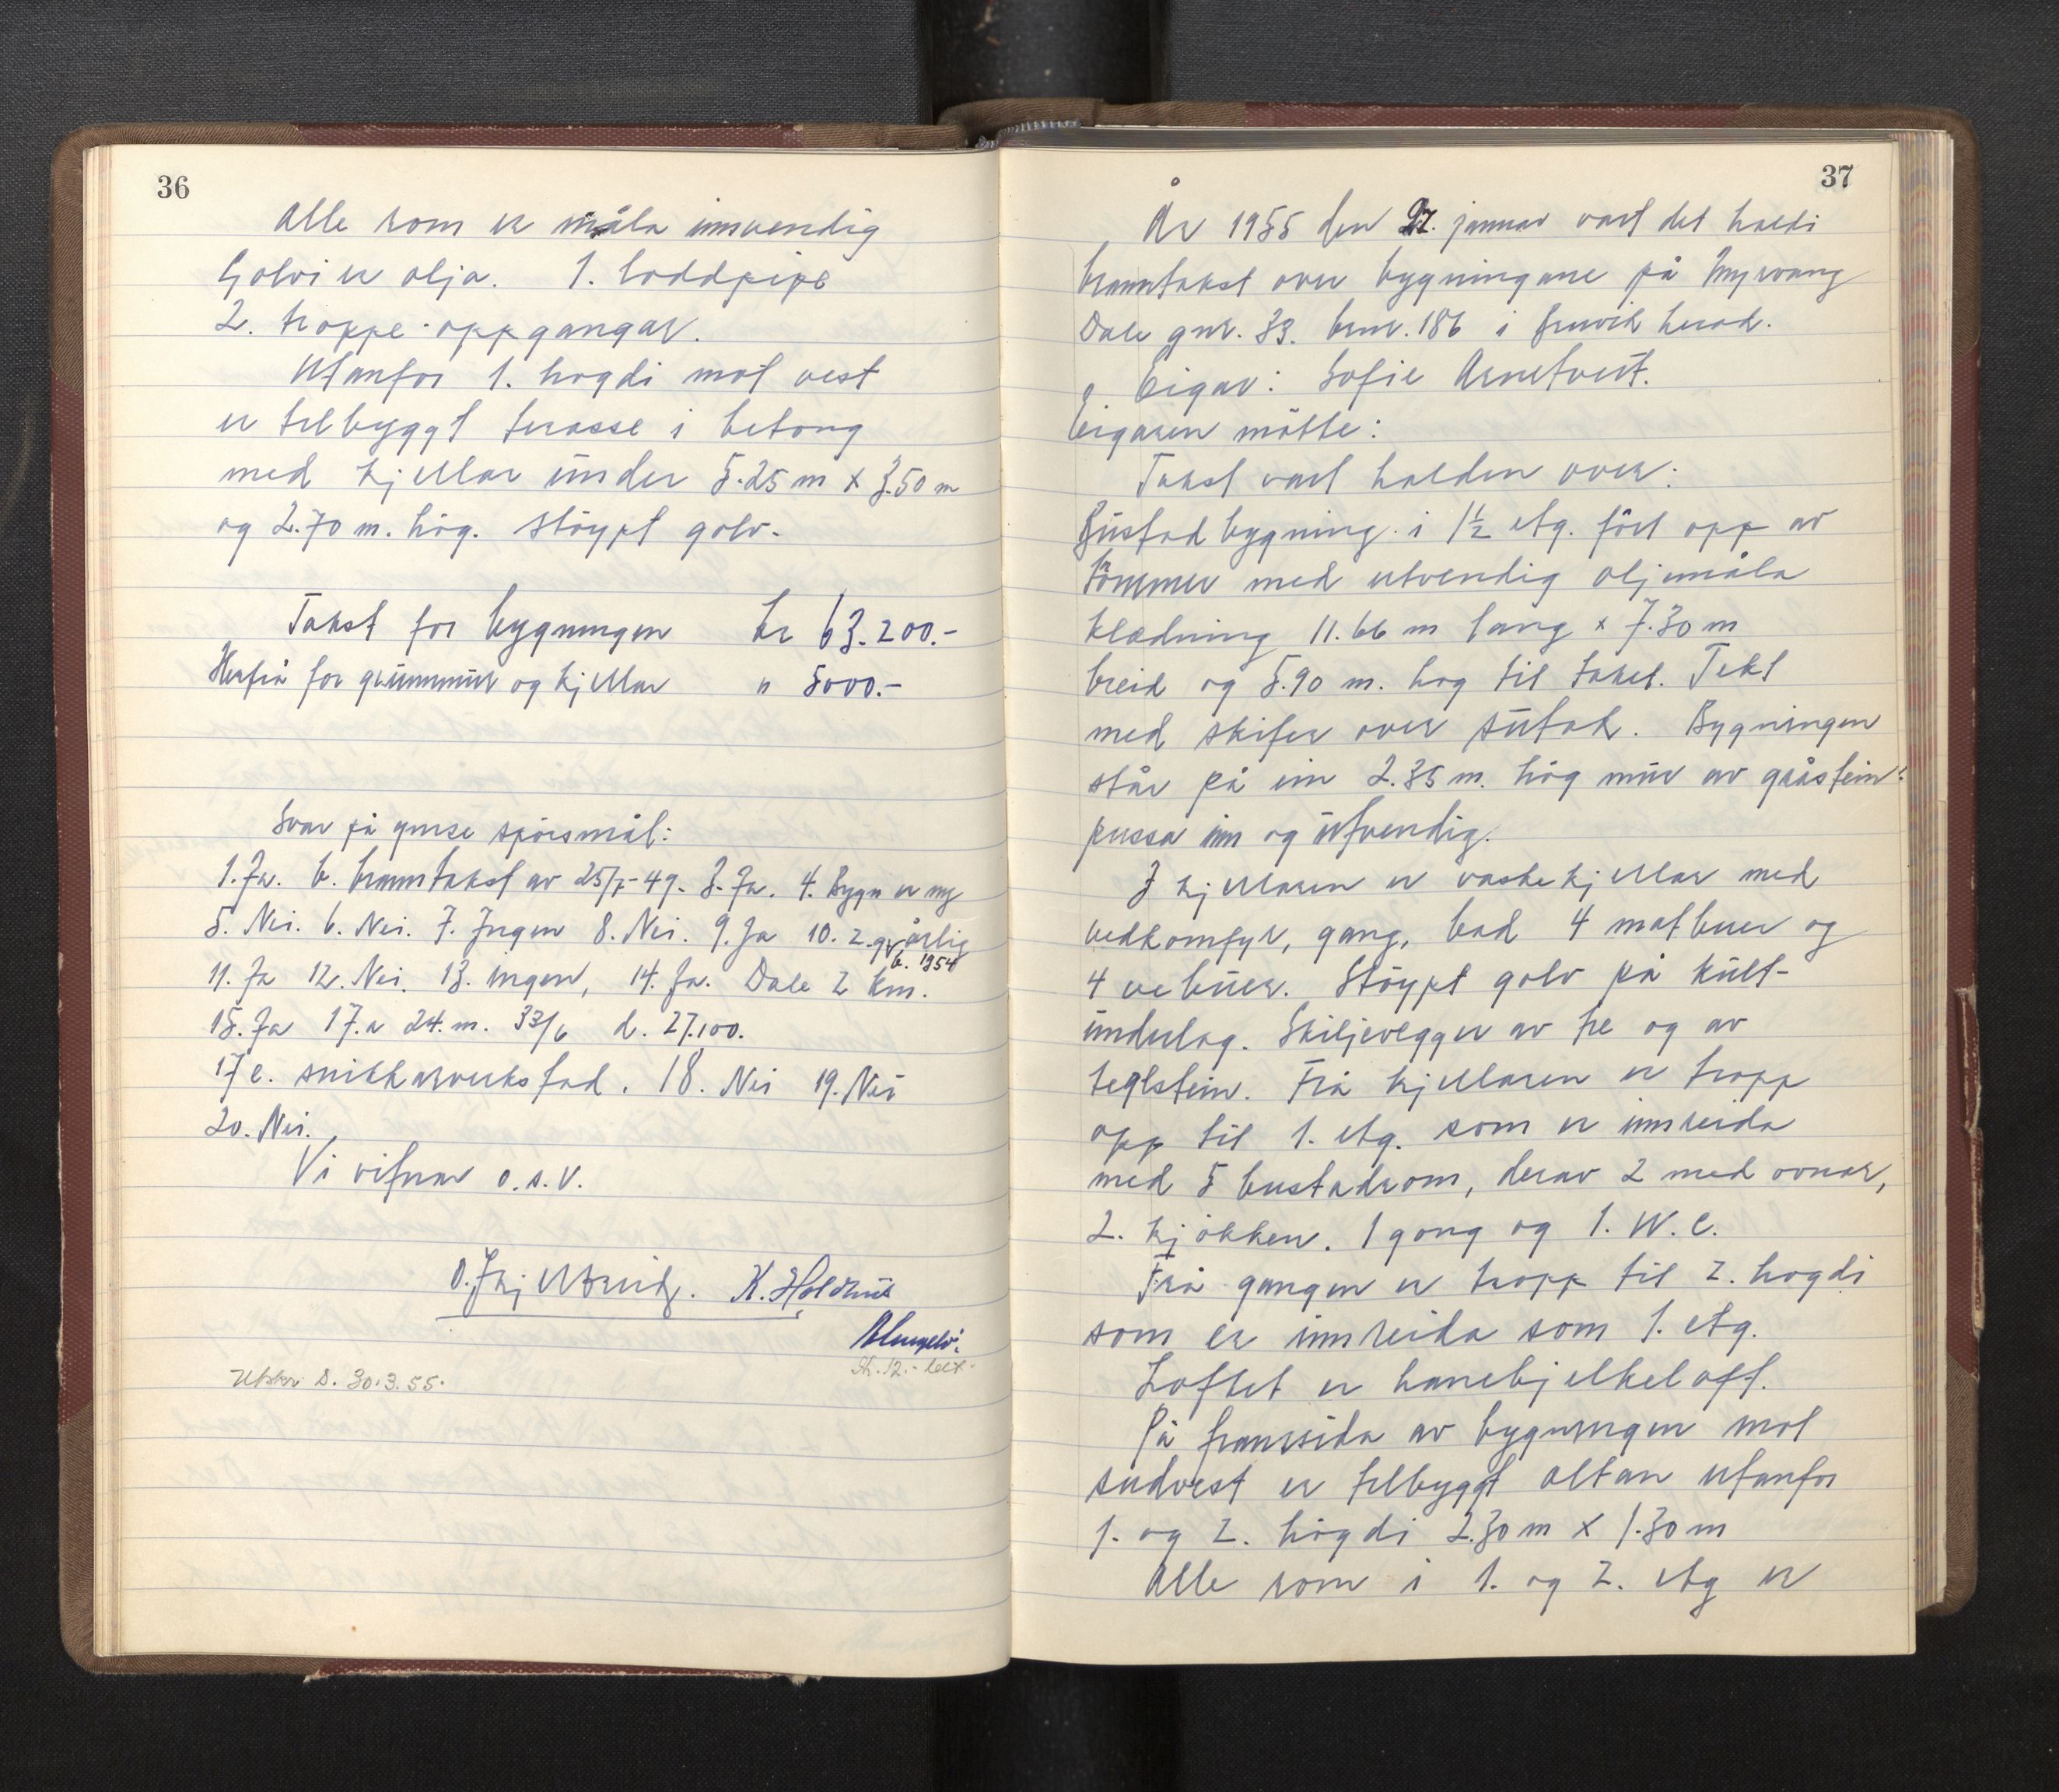 36
Alle rom er måla innvendig
Golvi er olja. 1. loddpipe
2. troppe-oppgangar.
Utanfor 1. høgdi mot vest
er tilbyggt terasse i betong
med kjellar under 5.25 m x 3.50 m
og 2.70 m. høg. Støypt golv.
Takst for bygningen kr 63.200.-
Herfrå for grunnmur og kjellar " 5000.-
Svar på ymse spørsmål:
1. Ja. b. branntakst av 25/7-49. 3. Ja. 4. Bygn er ny
5. Nei. 6. Nei. 7. Ingen 8. Nei. 9. Ja 10. 2. gr årlig
b. 1954
11. Ja 12. Nei. 13. ingen, 14. Ja. Dale 2 km.
15. Ja 17.a 24. m. 33/6 d. 27.100.
17 e. snikkarverkstad. 18. Nei 19. Nei
20. Nei.
Vi vitnar o.s.v.
K. Holdhus
Utskr. s. 30.3.55.
37
År 1955 den 27. januar vart det haldi
branntakst over bygningane på Myrvang
Dale gnr. 33. bnr. 186 i Bruvik herad.
Eigar: Sofie Arnetveit.
Eigaren møtte:
Takst vart halden over:
Bustadbygning i 1½ etg. ført opp av
tømmer med utvendig oljemåla
klædning 11.66 m lang x 7.30 m
breid og 5.90 m. høg til taket. Tekt
med skifer over sutak. Bygningen
står på ein 2.35 m. høg mur av gråstein
pussa inn og utvendig.
I kjellaren er vaskekjellar med
vedkomfyr, gang, bad 4 matbuer og
4 vebuer. Støypt golv på kult-
underlag. Skiljevegger av tre og av
teglstein. Frå kjellaren er tropp
opp til 1. etg. som er innreida
med 5 bustadrom, derav 2 med ovnar,
2. kjøkken. 1 gong og 1. W.C.
Frå gangen er tropp til 2. høgdi
som er innreida som 1. etg.
Loftet er hanebjelkeloft.
På framsida av bygningen mot
sudvest er tilbyggt altan utanfor
1. og 2. høgdi 2.30 m x 1.30 m
Alle rom i 1. og 2. etg er